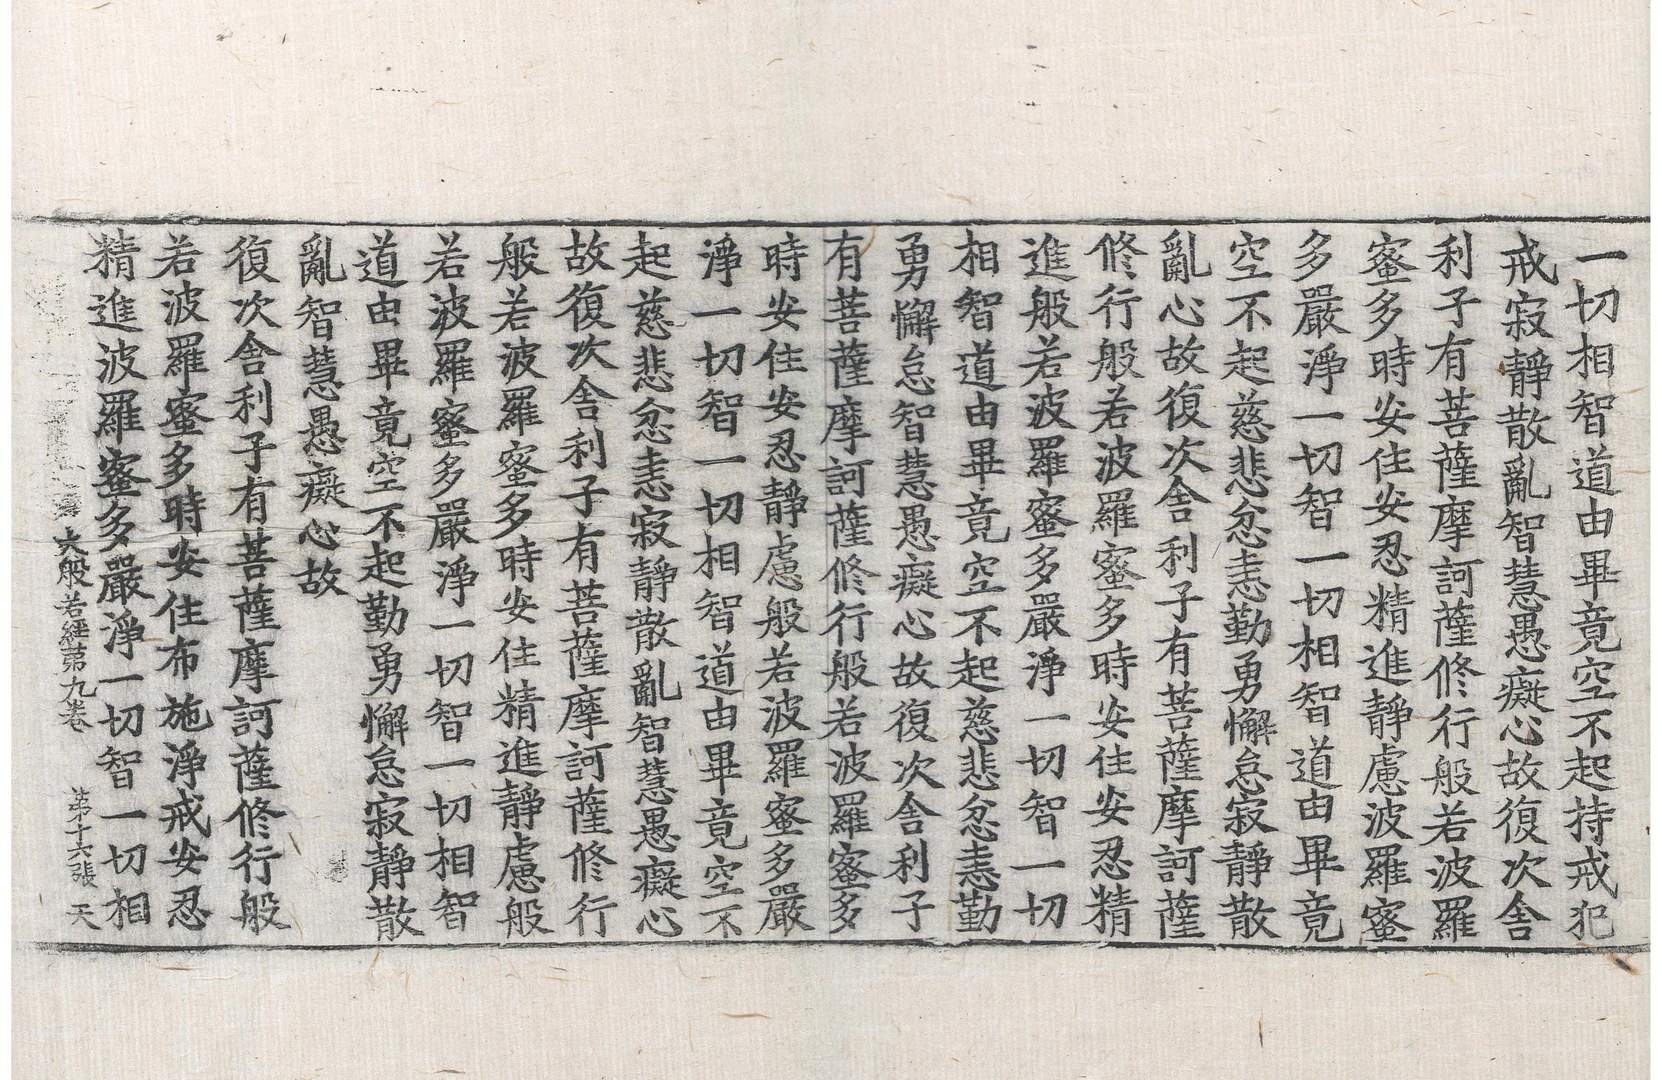 一切相智道由畢竟空不起持戒犯
戒寂靜散亂智慧愚癡心故復次舍
利子有菩薩摩訶薩修行般若波羅
蜜多時安住安忍精進靜慮波羅蜜
多嚴淨一切智一切相智道由畢竟
空不起慈悲忿恚勤勇懈怠寂靜散
亂心故復次舍利子有菩薩摩訶薩
修行般若波羅蜜多時安住安忍精
進般若波羅蜜多嚴淨一切智一切
相智道由畢竟空不起慈悲忿恚勤
勇懈怠智慧愚癡心故復次舍利子
有菩薩摩訶薩修行般若波羅蜜多
時安住安忍靜慮般若波羅蜜多嚴
淨一切智一切相智道由畢竟空不
起慈悲忿恚寂靜散亂智慧愚癡心
故復次舍利子有菩薩摩訶薩修行
般若波羅蜜多時安住精進靜慮般
若波羅蜜多嚴淨一切智一切相智
道由畢竟空不起勤勇懈怠寂靜散
亂智慧愚癡心故
復次舍利子有菩薩摩訶薩修行般
若波羅蜜多時安住布施淨戒安忍
精進波羅蜜多嚴淨一切智一切相
大般若經第九卷 第十六張 天